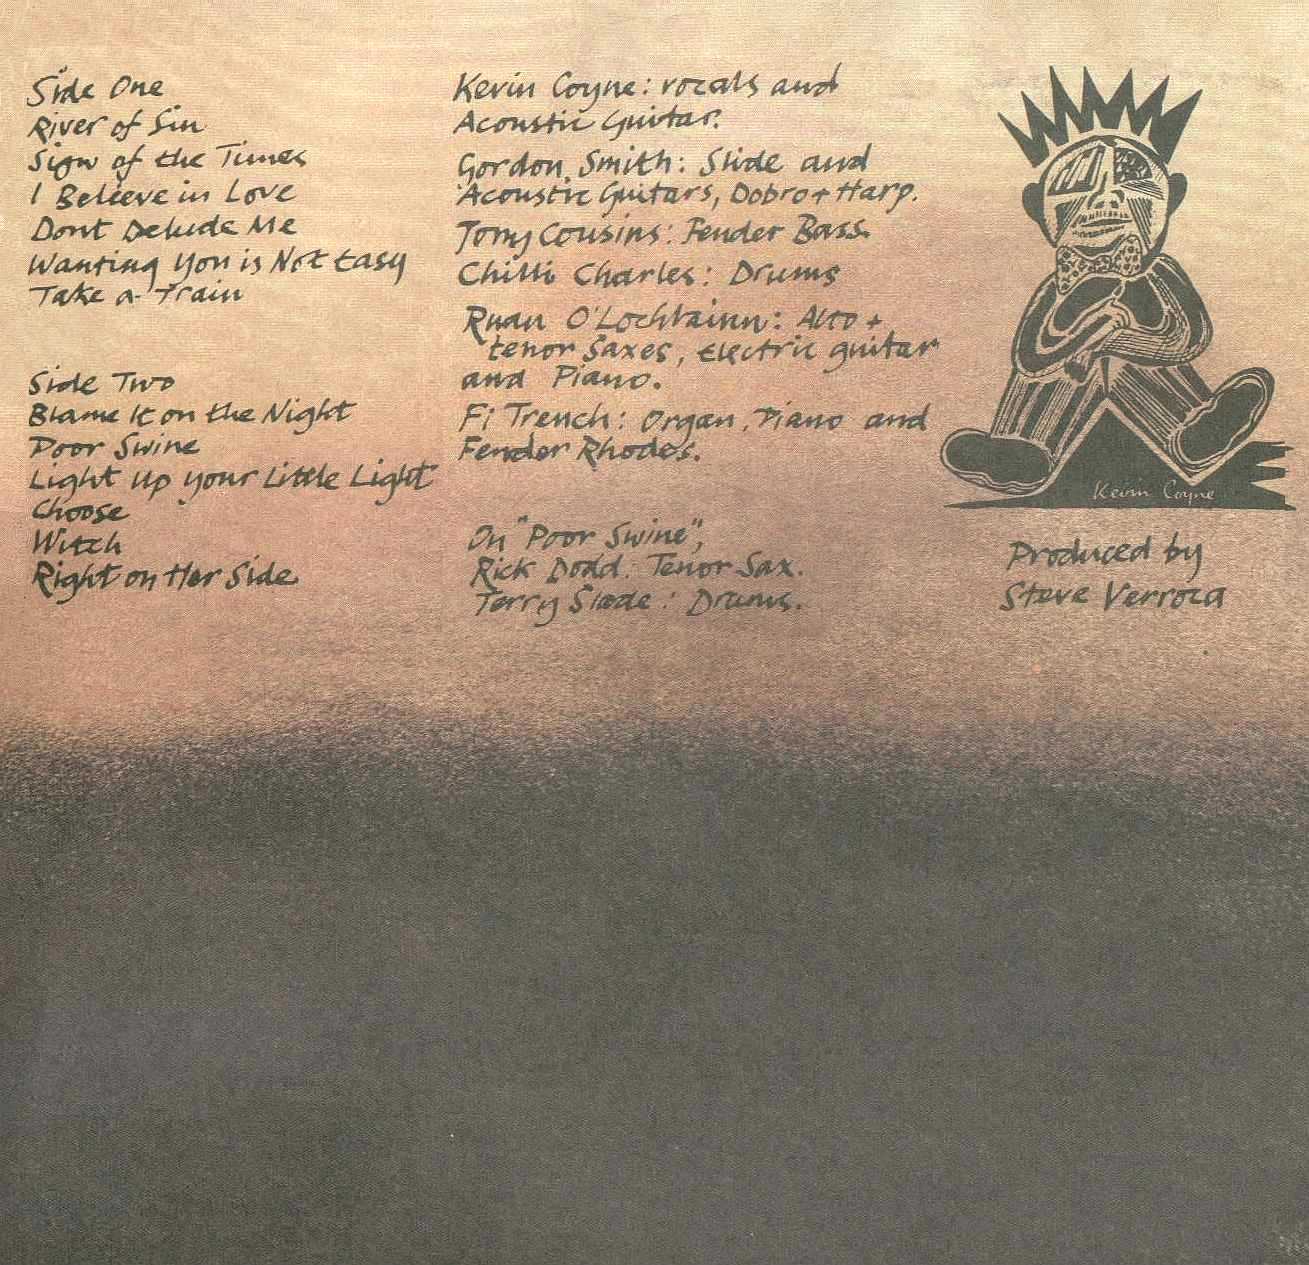 Side One
River of Sin
Sign of the Times
I Believe in Love
Dont Delude Me
Wanting You is Not Easy
Take a Train
Side Two
Blame It on the Night
Poor Swine
Light Up your Little Light
Choose
Witch
Right on Her Side
Kevin Coyne: vocals and
Acoustic Guitar.
Gordon Smith: Slide and
Acoustic Guitars, Dobro + Harp.
Tony Cousins: Fender Bass.
Chilli Charles: Drums
Ruan O'Lochlainn: Alto +
tenor Saxes, Electric guitar
and Piano.
Fi Trench: Organ, Piano and
Fender Rhodes.
On "Poor Swine",
Rick Dodd: Tenor Sax.
Terry Slade: Drums.
Kevin Coyne
Produced by
Steve Verroca